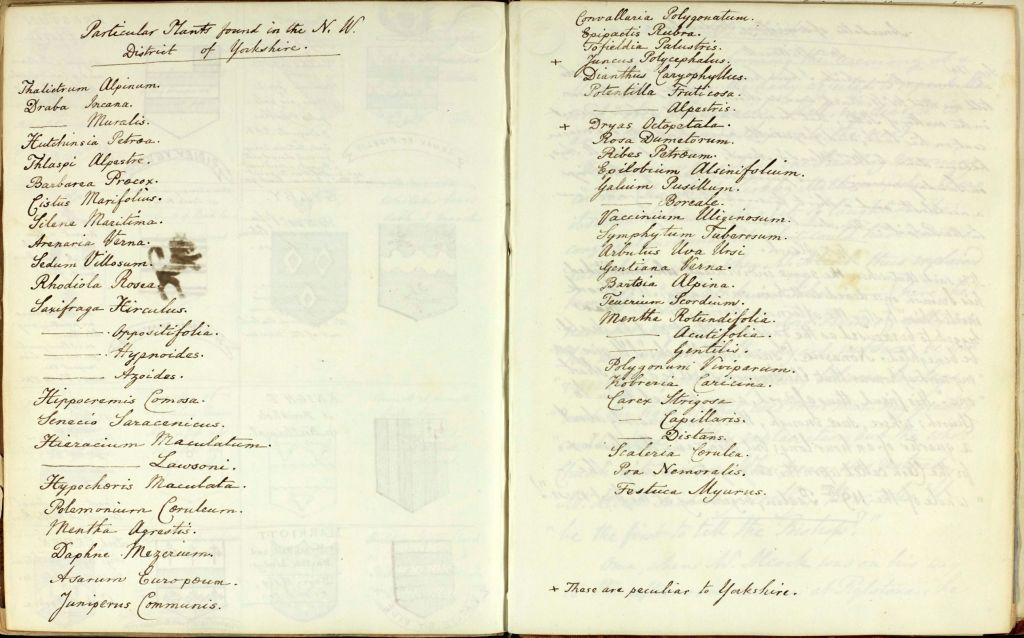 Particular Plants found in the N. W.
District of Yorkshire.
Thalictrum Alpinum.
Draba Incana.
——— Muralis.
Hutchinsia Petræa.
Thlaspi Alpestre.
Barbarea Præcox.
Cistus Marifolius.
Silene Maritima.
Arenaria Verna.
Sedum Villosum.
Rhodiola Rosea
Saxifraga Hirculus.
——— Oppositifolia.
——— Hypnoides.
——— Azoides.
Hippocremis Comosa.
Senecio Saracenicus.
Hieracium Maculatum.
——— Lawsoni.
Hypochœris Maculata.
Polemonium Cœruleum.
Mentha Agrestis.
Daphne Mezerium.
Asarum Europœum.
Juniperus Communis.
Convallaria Polygonatum.
Epipactis Rubra.
Tofieldia Palustris.
+ Juncus Polycephalus.
Dianthus Caryophyllus.
Potentilla Fruticosa.
——— Alpestris.
+ Dryas Octopetala.
Rosa Dumetorum.
Ribes Petræum.
Epilobium Alsinifolium.
Galium Pusillum.
——— Boreale.
Vaccinium Uliginosum.
Symphytum Tuberosum.
Arbutus Uva Ursi
Gentiana Verna.
Bartsia Alpina.
Teucrium Scordium.
Mentha Rotundifolia.
——— Acutifolia.
——— Gentilis.
Polygonum Viviparum.
Kobresia Caricina.
Carex Strigosa
— Capillaris.
— Distans.
Scaleria Cerulea.
Poa Nemoralis.
Festuca Myurus.
+ These are peculiar to Yorkshire.